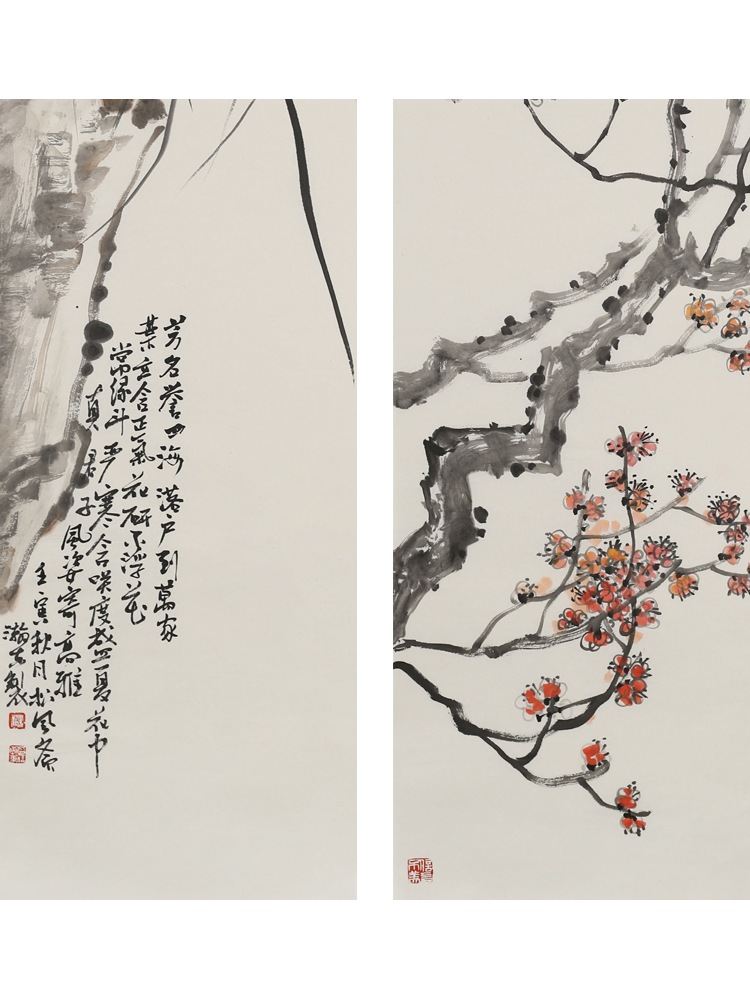 芳名誉四海落户到萬家
葉立含正氣花研不浮花
常绿斗严寒含咲度盛夏花中
真君子風姿寄高雅
壬寅秋月松风斋
瀚 製